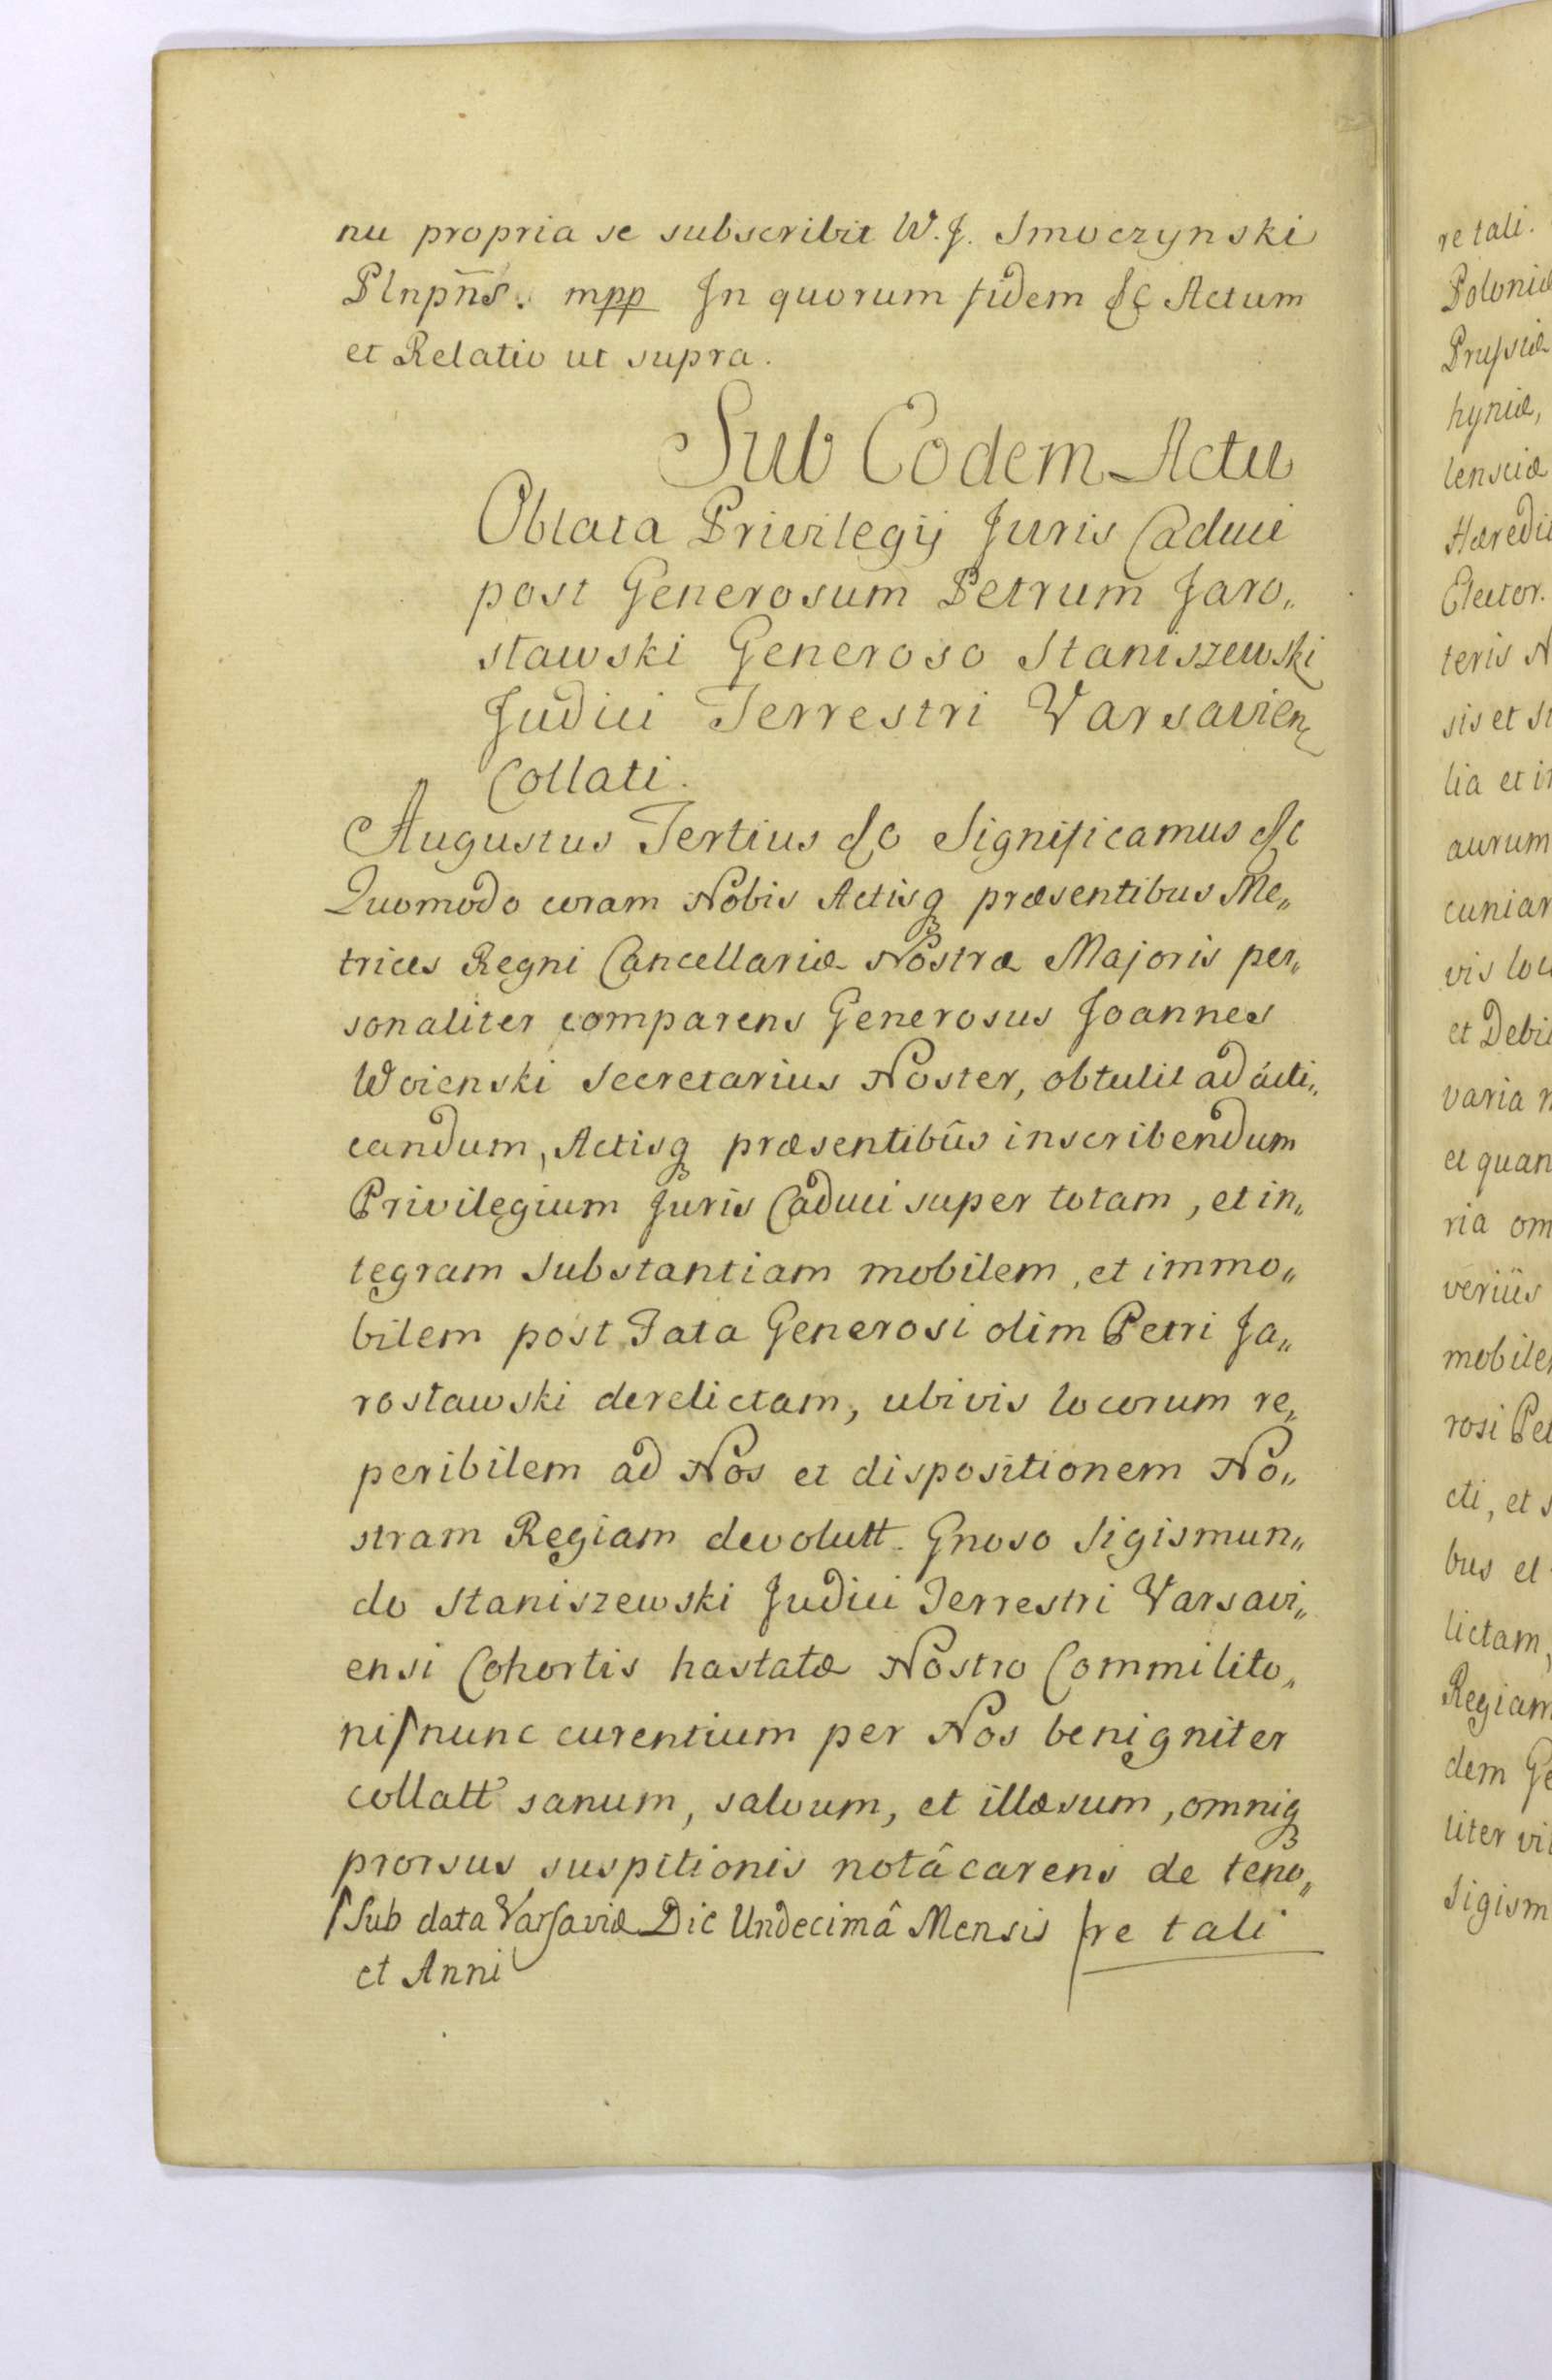 nu propria se subscribit W. J. Smoczynski
Plnpn̅s. mpp In quorum fidem &c Actum
et Relatio ut supra.
Sub Eodem Actu
Oblata Privilegij Juris Caduci
post Generosum Petrum Jaro„
sławski Generoso Staniszewski
Judici Terrestri Varsavien
Collati.
Augustus Tertius &c Significamus &c
Quomodo coram Nobis Actisq præsentibus Me„
trices Regni Cancellariæ Nostræ Majoris per„
sonaliter comparens Generosus Joannes
Woienski Secretarius Noster, obtulit ad acti„
candum, Actisq præsentibûs inscribendum
Privilegium Juris Caduci super totam, et in„
tegram Substantiam mobilem, et immo„
bilem post Fata Generosi olim Petri Ja„
rosławski derelictam, ubivis locorum re„
peribilem ad Nos et dispositionem No„
stram Regiam devolutt. Gnoso Sigismun„
do Staniszewski Judici Terrestri Varsavi„
ensi Cohortis hastatæ Nostro Commilito„
ni/nunc curentium per Nos benigniter
collatt sanum, salvum, et illæsum, omniq
prorsus suspitionis notâ carens de teno„
/Sub data Varsaviæ Die Undecimâ Mensis /re tali
et Anni
re tali.
Poloniæ
Prussiæ
hyniæ,
lensciæ
Hæredit
Elector.
teris N
sis et st
lia et in
aurum
cuniar
vis loc
et Debi
varia n
et quan
ria om
veriüs
mobile
rosi Pet
cti, et s
bus et
lictam,
Regiam
dem Ge
liter vi
Sigism